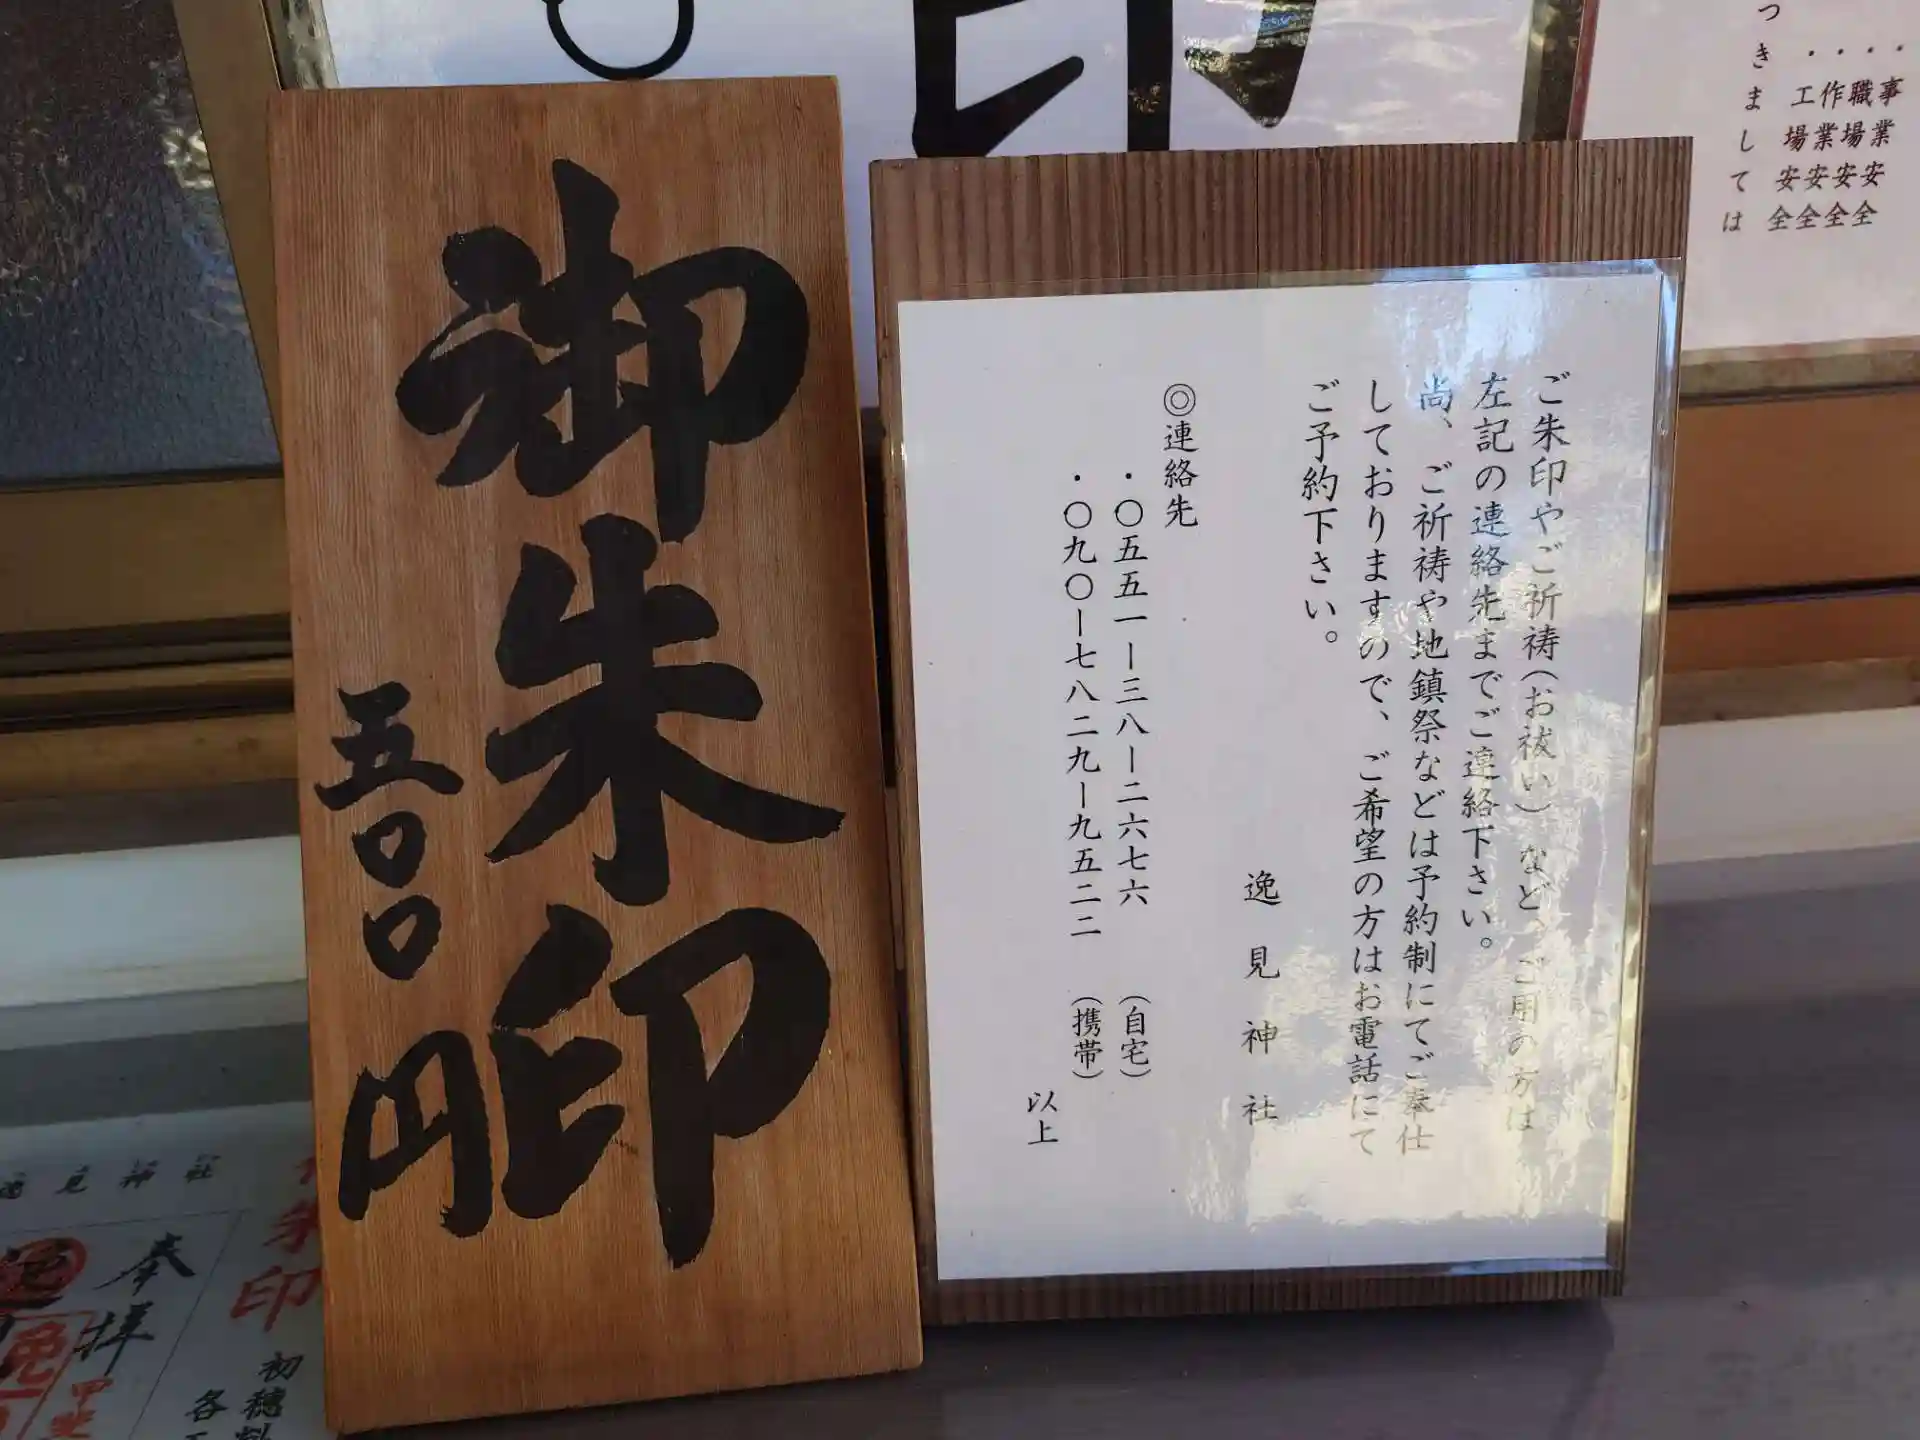 御朱印
五〇〇円
ご朱印やご祈祷(お祓い)など、ご用の方は
左記の連絡先までご連絡下さい。
尚、ご祈祷や地鎮祭などは予約制にてご奉仕
しておりますので、ご希望の方はお電話にて
ご予約下さい。
逸見神社
◎連絡先
・〇五五一ー三八ー二六七六(自宅)
・〇九〇ー七八二九ー九五二二(携帯)
以上
印
事業安全
・職場安全
・作業安全
・工場安全
つきましては
逸見神社
朱印
初穂料
各
奉拝